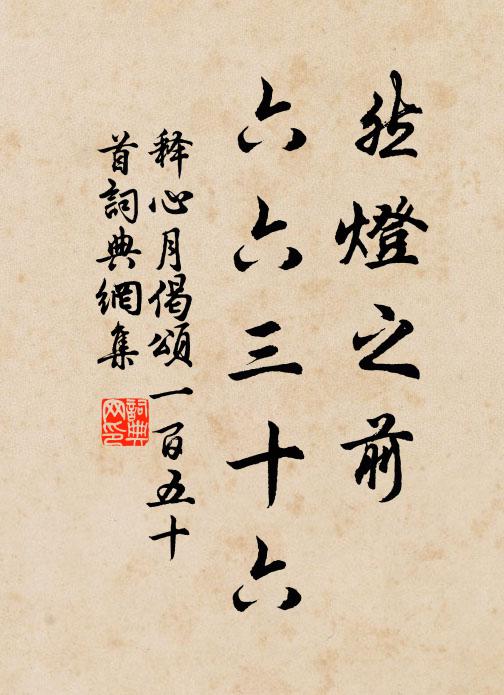 然燈之前
六六三十六
释心月偈頌一百五十
首詞典網集
詞典
网印